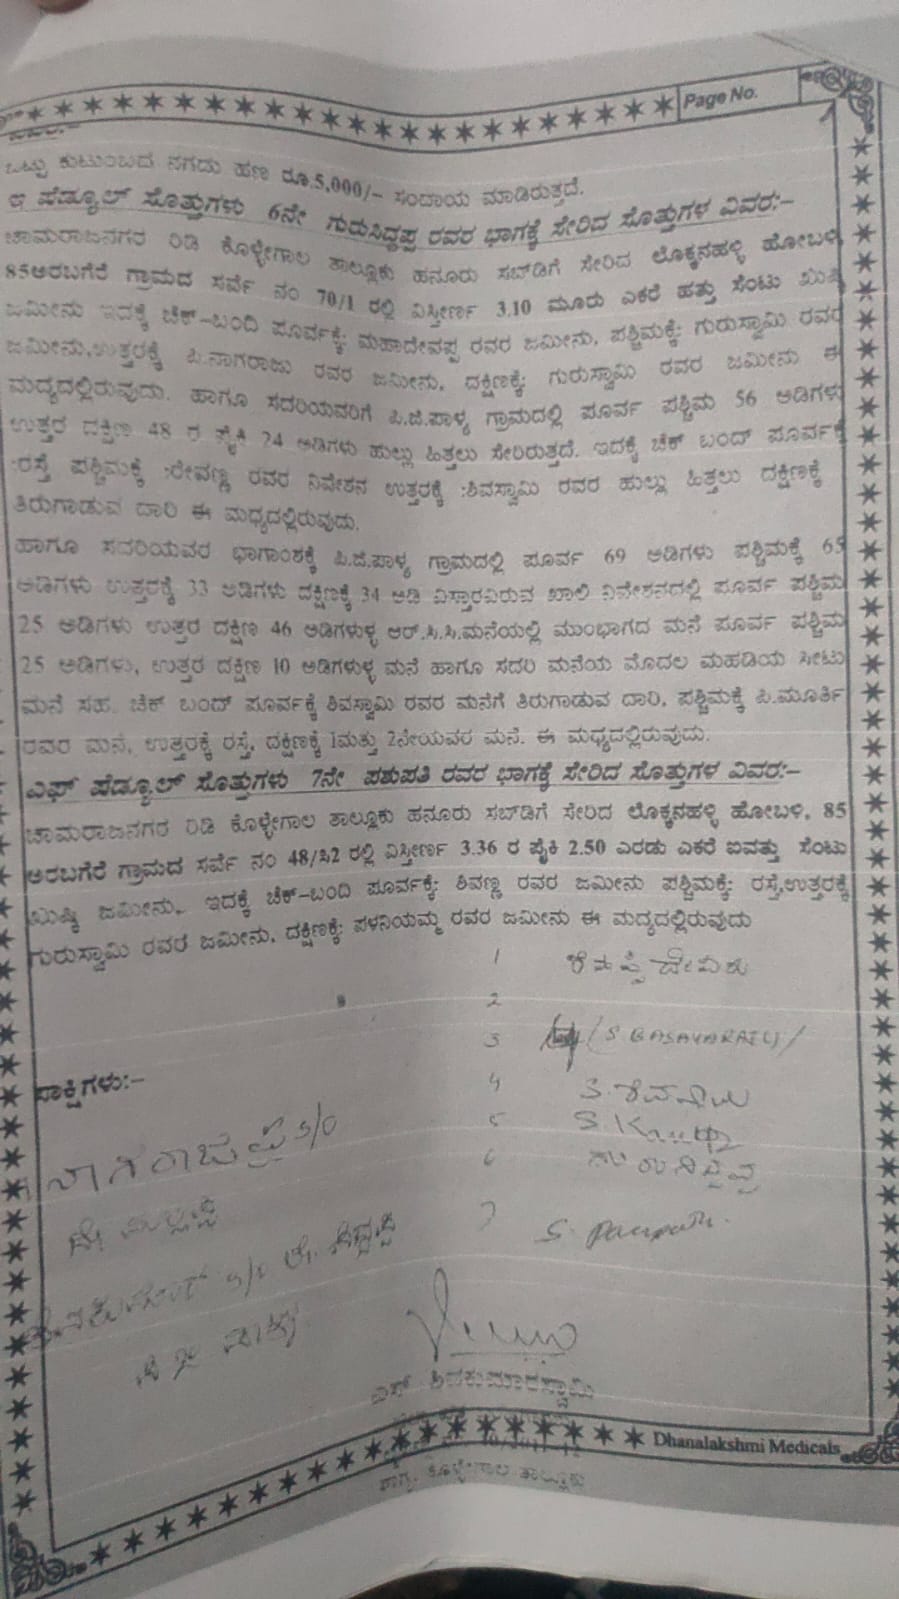 Page No.
ಒಟ್ಟು ಕುಟುಂಬದ ನಗದು ಹಣ ರೂ.5,000/- ಸಂದಾಯ ಮಾಡಿರುತ್ತದೆ.
ಇ ಷೆಡ್ಯೂಲ್ ಸೊತ್ತುಗಳು 6ನೇ ಗುರುಸಿದ್ದಪ್ಪ ರವರ ಭಾಗಕ್ಕೆ ಸೇರಿದ ಸೊತ್ತುಗಳ ವಿವರ:-
ಚಾಮರಾಜನಗರ ರಿಡಿ ಕೊಳ್ಳೇಗಾಲ ತಾಲ್ಲೂಕು ಹನೂರು ಸಬ್‌ಡಿಗೆ ಸೇರಿದ ಲೊಕ್ಕನಹಳ್ಳಿ ಹೋಬಳಿ,
85ಅರಬಗೆರೆ ಗ್ರಾಮದ ಸರ್ವೆ ನಂ 70/1 ರಲ್ಲಿ ವಿಸ್ತೀರ್ಣ 3.10 ಮೂರು ಎಕರೆ ಹತ್ತು ಸೆಂಟು ಖುಷ್ಕಿ
ಜಮೀನು ಇದಕ್ಕೆ ಚೆಕ್-ಬಂದಿ ಪೂರ್ವಕ್ಕೆ: ಮಹಾದೇವಪ್ಪ ರವರ ಜಮೀನು, ಪಶ್ಚಿಮಕ್ಕೆ: ಗುರುಸ್ವಾಮಿ ರವರ
ಜಮೀನು,ಉತ್ತರಕ್ಕೆ ಪಿ.ನಾಗರಾಜು ರವರ ಜಮೀನು, ದಕ್ಷಿಣಕ್ಕೆ: ಗುರುಸ್ವಾಮಿ ರವರ ಜಮೀನು ಈ
ಮದ್ಯದಲ್ಲಿರುವುದು. ಹಾಗೂ ಸದರಿಯವರಿಗೆ ಪಿ.ಜಿ.ಪಾಳ್ಯ ಗ್ರಾಮದಲ್ಲಿ ಪೂರ್ವ ಪಶ್ಚಿಮ 56 ಅಡಿಗಳು
ಉತ್ತರ ದಕ್ಷಿಣ 48 ರ ಪೈಕಿ 24 ಅಡಿಗಳು ಹುಲ್ಲು ಹಿತ್ತಲು ಸೇರಿರುತ್ತದೆ. ಇದಕ್ಕೆ ಚೆಕ್ ಬಂದ್ ಪೂರ್ವಕ್ಕೆ
:ರಸ್ತೆ ಪಶ್ಚಿಮಕ್ಕೆ :ರೇವಣ್ಣ ರವರ ನಿವೇಶನ ಉತ್ತರಕ್ಕೆ :ಶಿವಸ್ವಾಮಿ ರವರ ಹುಲ್ಲು ಹಿತ್ತಲು ದಕ್ಷಿಣಕ್ಕೆ
ತಿರುಗಾಡುವ ದಾರಿ ಈ ಮಧ್ಯದಲ್ಲಿರುವುದು.
ಹಾಗೂ ಸದರಿಯವರ ಭಾಗಾಂಶಕ್ಕೆ ಪಿ.ಜಿ.ಪಾಳ್ಯ ಗ್ರಾಮದಲ್ಲಿ ಪೂರ್ವ 69 ಅಡಿಗಳು ಪಶ್ಚಿಮಕ್ಕೆ 65
ಅಡಿಗಳು ಉತ್ತರಕ್ಕೆ 33 ಅಡಿಗಳು ದಕ್ಷಿಣಕ್ಕೆ 34 ಅಡಿ ವಿಸ್ತಾರವಿರುವ ಖಾಲಿ ನಿವೇಶನದಲ್ಲಿ ಪೂರ್ವ ಪಶ್ಚಿಮ
25 ಅಡಿಗಳು ಉತ್ತರ ದಕ್ಷಿಣ 46 ಅಡಿಗಳುಳ್ಳ ಆರ್.ಸಿ.ಸಿ.ಮನೆಯಲ್ಲಿ ಮುಂಭಾಗದ ಮನೆ ಪೂರ್ವ ಪಶ್ಚಿಮ
25 ಅಡಿಗಳು, ಉತ್ತರ ದಕ್ಷಿಣ 10 ಅಡಿಗಳುಳ್ಳ ಮನೆ ಹಾಗೂ ಸದರಿ ಮನೆಯ ಮೊದಲ ಮಹಡಿಯ ಸೀಟು
ಮನೆ ಸಹ. ಚೆಕ್ ಬಂದ್ ಪೂರ್ವಕ್ಕೆ ಶಿವಸ್ವಾಮಿ ರವರ ಮನೆಗೆ ತಿರುಗಾಡುವ ದಾರಿ, ಪಶ್ಚಿಮಕ್ಕೆ ಪಿ.ಮೂರ್ತಿ
ರವರ ಮನೆ, ಉತ್ತರಕ್ಕೆ ರಸ್ತೆ, ದಕ್ಷಿಣಕ್ಕೆ 1ಮತ್ತು 2ನೇಯವರ ಮನೆ. ಈ ಮಧ್ಯದಲ್ಲಿರುವುದು.
ಎಫ್ ಷೆಡ್ಯೂಲ್ ಸೊತ್ತುಗಳು 7ನೇ ಪಶುಪತಿ ರವರ ಭಾಗಕ್ಕೆ ಸೇರಿದ ಸೊತ್ತುಗಳ ವಿವರ:-
ಚಾಮರಾಜನಗರ ರಿಡಿ ಕೊಳ್ಳೇಗಾಲ ತಾಲ್ಲೂಕು ಹನೂರು ಸಬ್‌ಡಿಗೆ ಸೇರಿದ ಲೊಕ್ಕನಹಳ್ಳಿ ಹೋಬಳಿ, 85
ಅರಬಗೆರೆ ಗ್ರಾಮದ ಸರ್ವೆ ನಂ 48/ಸಿ2 ರಲ್ಲಿ ವಿಸ್ತೀರ್ಣ 3.36 ರ ಪೈಕಿ 2.50 ಎರಡು ಎಕರೆ ಐವತ್ತು ಸೆಂಟು
ಖುಷ್ಕಿ ಜಮೀನು, ಇದಕ್ಕೆ ಚೆಕ್-ಬಂದಿ ಪೂರ್ವಕ್ಕೆ: ಶಿವಣ್ಣ ರವರ ಜಮೀನು ಪಶ್ಚಿಮಕ್ಕೆ: ರಸ್ತೆ,ಉತ್ತರಕ್ಕೆ
ಗುರುಸ್ವಾಮಿ ರವರ ಜಮೀನು, ದಕ್ಷಿಣಕ್ಕೆ: ಪಳನಿಯಮ್ಮ ರವರ ಜಮೀನು ಈ ಮದ್ಯದಲ್ಲಿರುವುದು
1
2
3 (S BASAVARAJU)
ಸಾಕ್ಷಿಗಳು:-
4
5
6 ಗುರುಸಿದ್ದಪ್ಪ
7
ನಾಗರಾಜಪ್ಪ S/O
S/O ಲೇ. ಸಿದ್ದಪ್ಪ
ಪಿ ಜಿ ಪಾಳ್ಯ
ಎಸ್ ಶಿವಕುಮಾರಸ್ವಾಮಿ
Dhanalakshmi Medicals
ಕೊಳ್ಳೇಗಾಲ ತಾಲ್ಲೂಕು